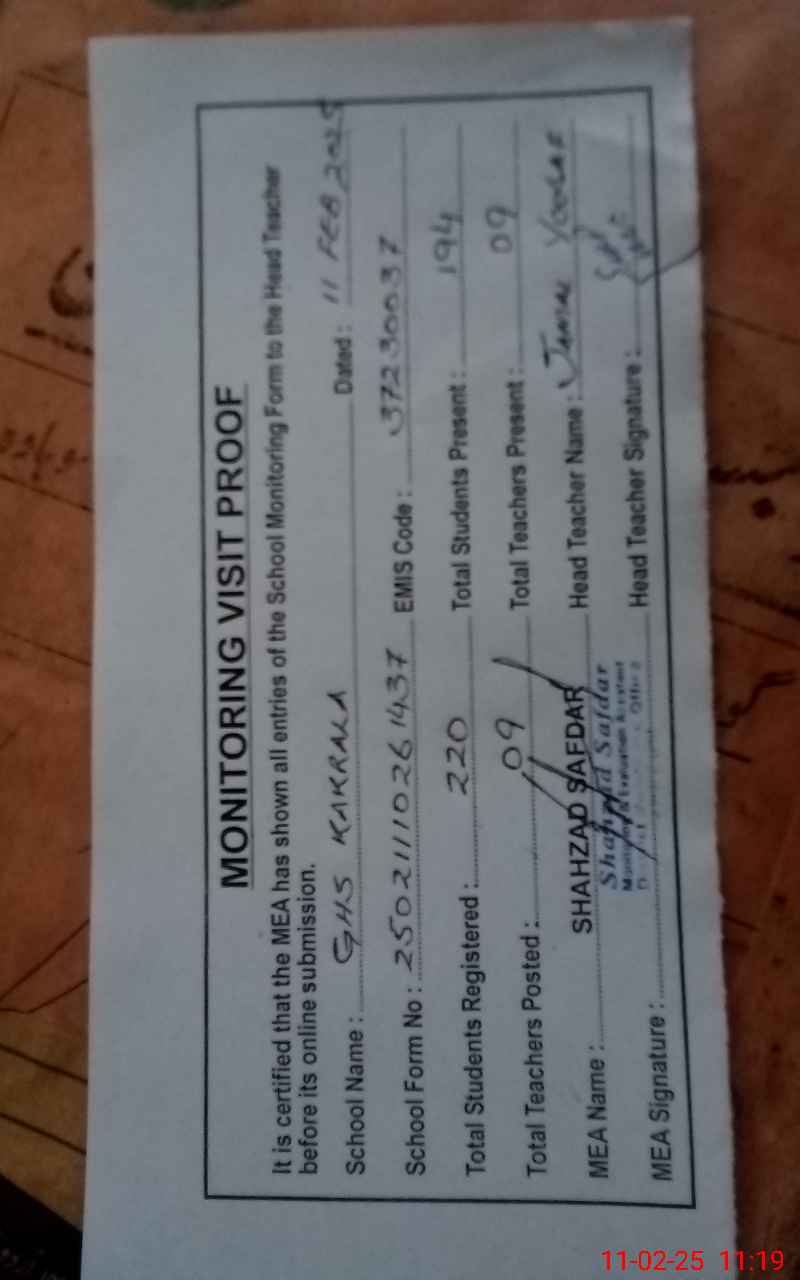 MONITORING VISIT PROOF
It is certified that the MEA has shown all entries of the School Monitoring Form to the Head Teacher
before its online submission.
School Name : GHS KAKRALA Dated : 11 FEB 2025
School Form No : 250211110261437 EMIS Code : 37230037
Total Students Registered : 220 Total Students Present : 194
Total Teachers Posted : 09 Total Teachers Present : 09
MEA Name : SHAHZAD SAFDAR Head Teacher Name :
Shahzad Safdar
Monitoring & Evaluation Assistant
MEA Signature : Head Teacher Signature :
11-02-25 11:19